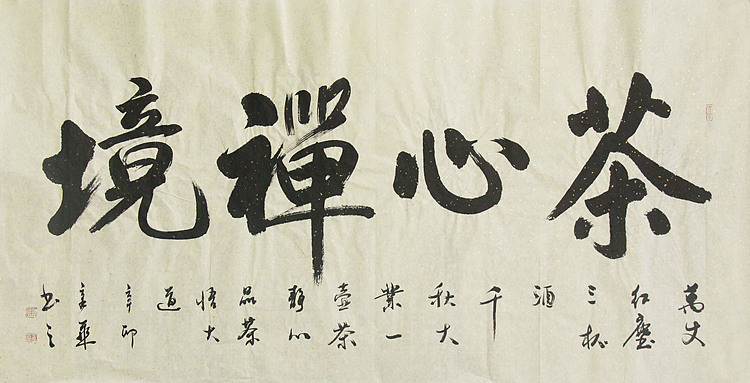 茶心禪境
萬丈
红塵
三杯
酒
千
秋大
業一
壺茶
静心
品茶
悟大
道
辛卯
華
书之